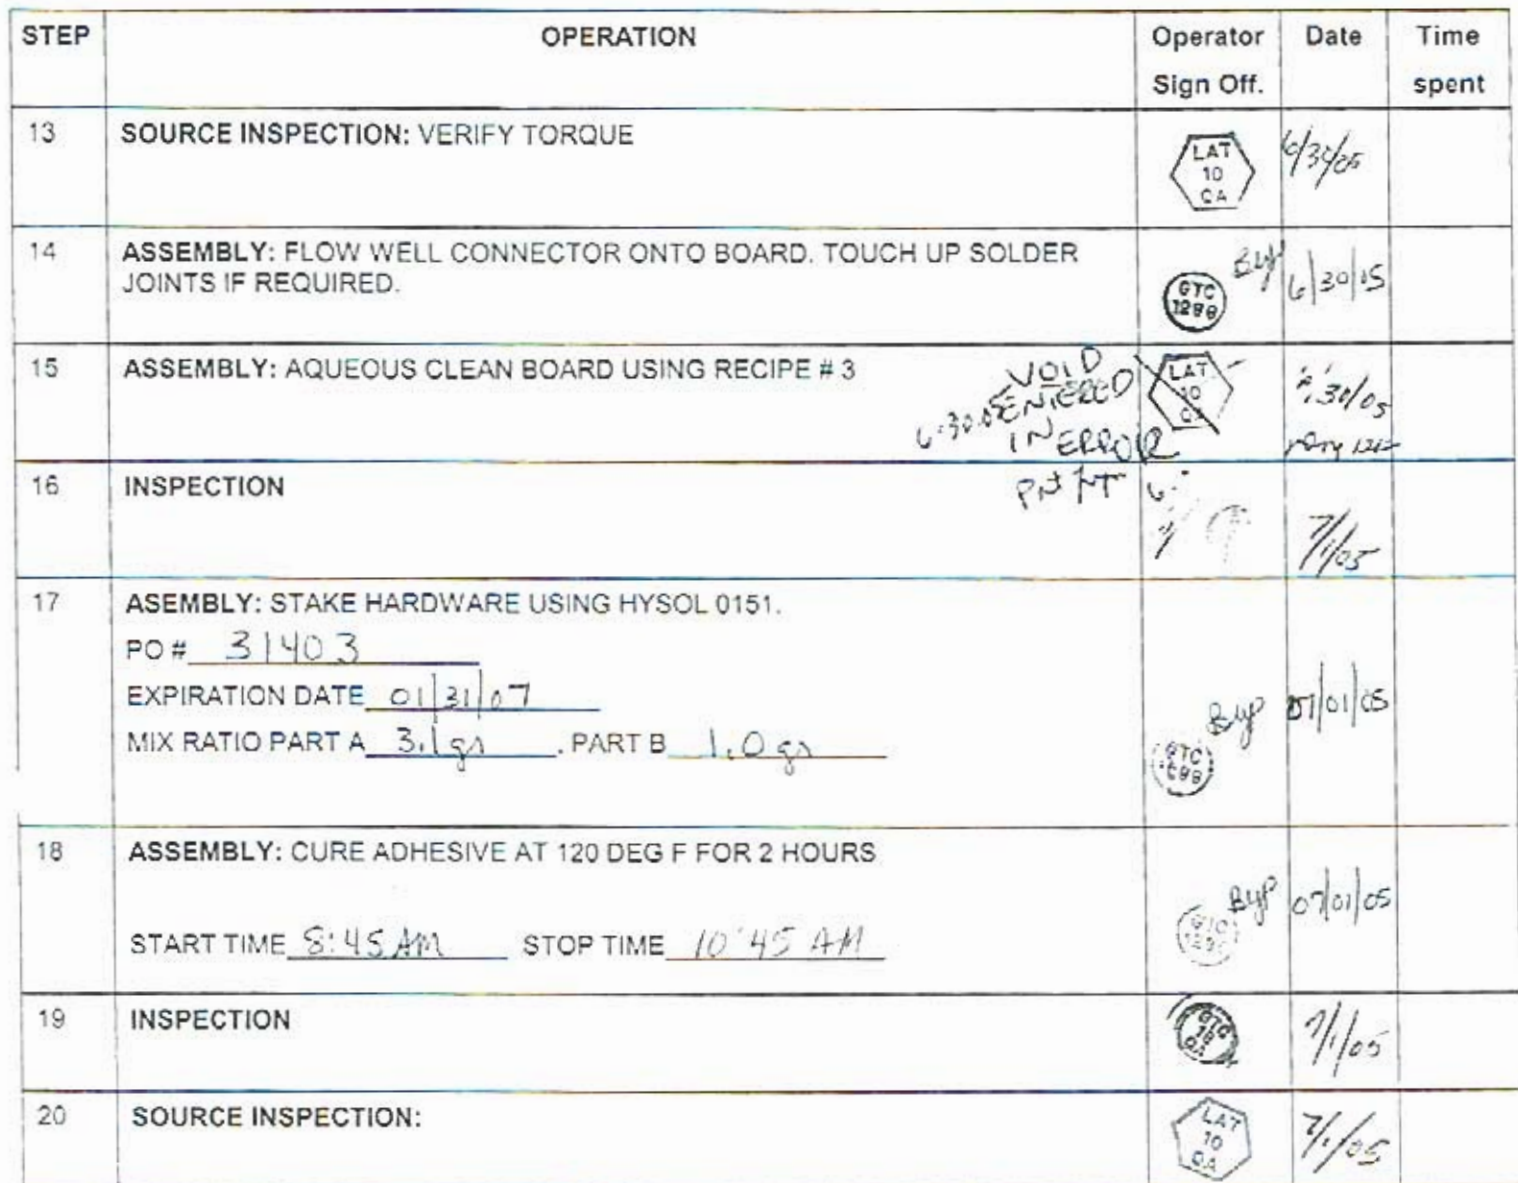 STEP OPERATION Operator Date Time
Sign Off. spent
13 SOURCE INSPECTION: VERIFY TORQUE
LAT
10
QA
6/30/05
14 ASSEMBLY: FLOW WELL CONNECTOR ONTO BOARD. TOUCH UP SOLDER
JOINTS IF REQUIRED.
GTC
1288
Byp
6/30/05
15 ASSEMBLY: AQUEOUS CLEAN BOARD USING RECIPE # 3
VOID
6-30-05 ENTERED
IN ERROR
LAT
10
QA
30/05
16 INSPECTION
7/1/05
17 ASEMBLY: STAKE HARDWARE USING HYSOL 0151.
PO # 31403
EXPIRATION DATE 01/31/07
MIX RATIO PART A 3.1gr . PART B 1.0 gr
GTC
Byp
07/01/05
18 ASSEMBLY: CURE ADHESIVE AT 120 DEG F FOR 2 HOURS
START TIME 8:45 AM STOP TIME 10:45 AM
GTC
Byp
07/01/05
19 INSPECTION
GTC
18
QA
7/1/05
20 SOURCE INSPECTION:
LAT
10
QA
7/1/05